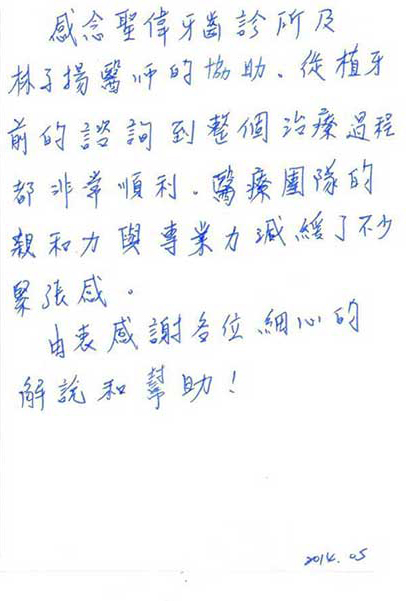 感念聖偉牙齒診所及
林子揚醫师的協助。從植牙
前的諮詢到整個治療過程
都非常順利。醫療團隊的
親和力與專業力減緩了不少
緊張感。
由衷感謝各位細心的
解說和幫助！
2014.05